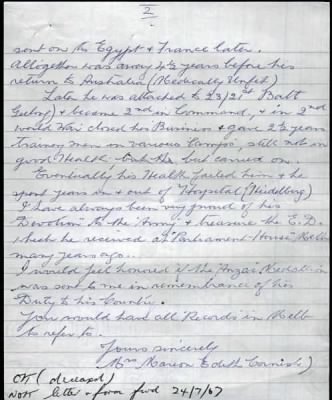 2
sent on to Egypt & France later.
Altogether was away 4½ years before his
return to Australia (Medically Unfit)
Later he was attached to 23/21st Batt
& became 2nd in Command, & in 2nd
world War closed his Business & gave 2½ years
training men in various Camps, still not in
good Health but carried on.
Eventually his Health failed him & he
spent years in & out of Hospital (Heidelberg)
I have always been very proud of his
Devotion to the Army & treasure the E.D.
which he received at "Parliament House" Melb
many years ago.
I would feel honored if the "Anzac" Medallion
was sent to me in remembrance of his
Duty to his Country.
You would have all Records in Melb
to refer to.
Yours sincerely
Mrs Marion Edith Cornish)
(deceased)
Note letter & form fwd 24/7/67